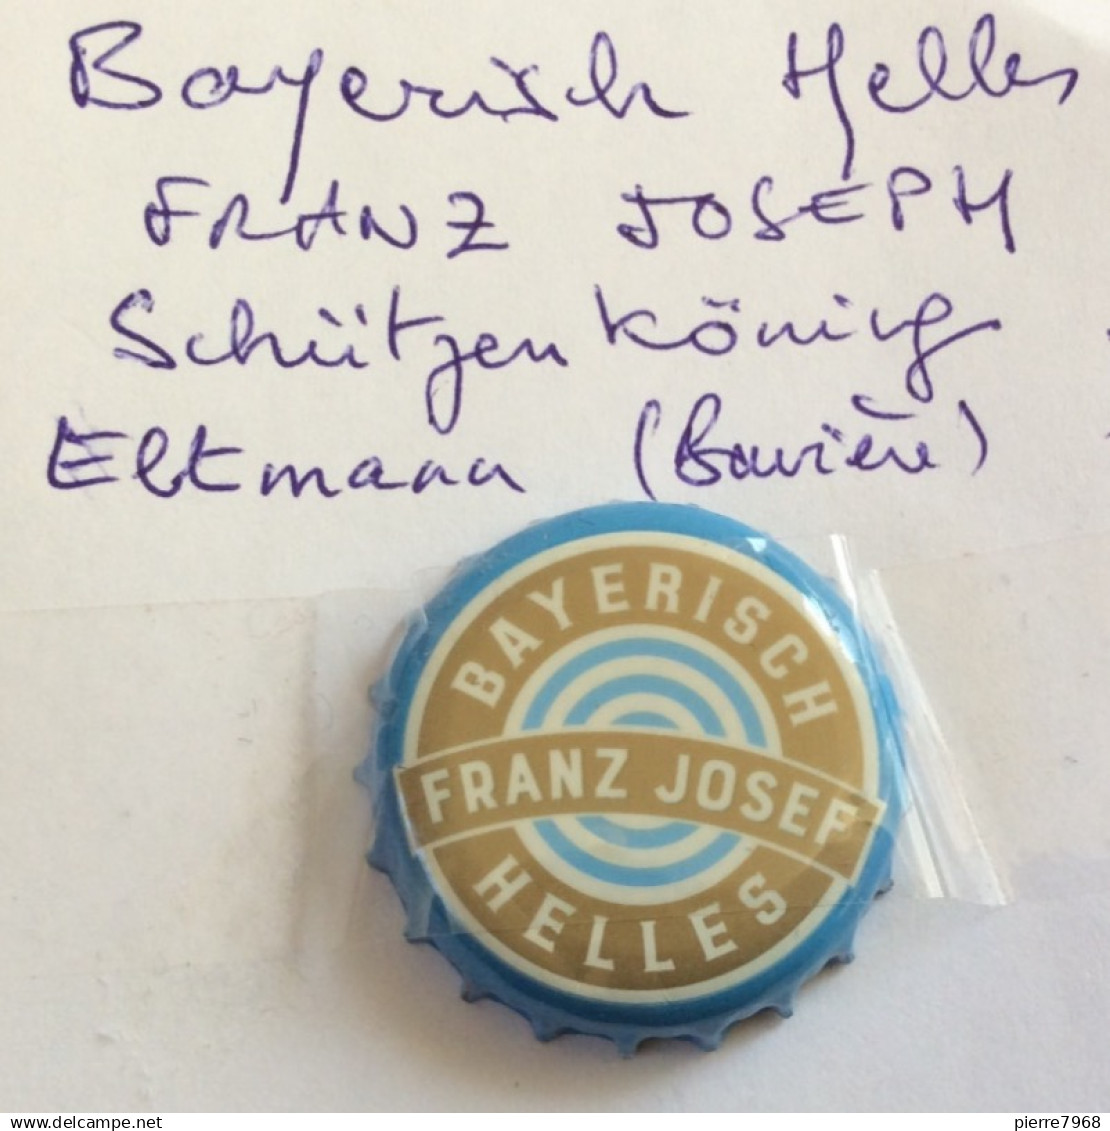 Bayerisch Helles
FRANZ JOSEPH
Schützenkönig
Eltmann (Bavière)
BAYERISCH
FRANZ JOSEF
HELLES
www.delcampe.net
pierre7968